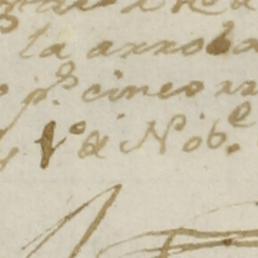 la arroba
p.s cinco rr
1.o de Nob.e